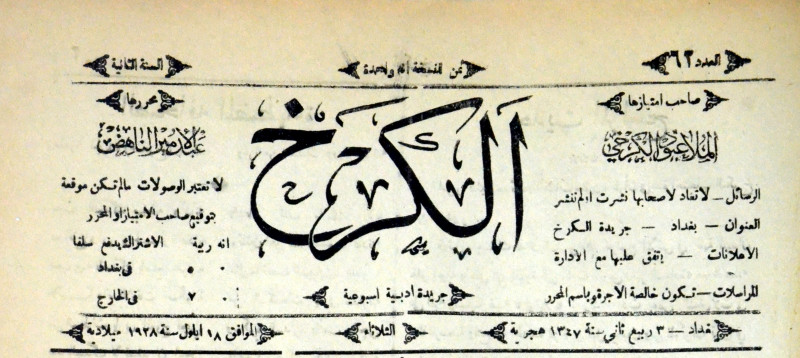 العدد ٦٢
ثمن النسخة آنه واحدة
السنة الثانية
صاحب امتيازها
الملا عبود الكرخي
الرسائل — لا تعاد لاصحابها نشرت او لم تنشر
العنوان — بغداد — جريدة الكرخ
الاعلانات — يتفق عليها مع الادارة
المراسلات — تكون خالصة الاجرة وباسم المحرر
الكرخ
جريدة ادبية اسبوعية
محررها
عبد الامير الناهض
لا تعتبر الوصولات مالم تكن موقعة
بتوقيع صاحب الامتياز او المحرر
انه ربية الاشتراك يدفع سلفا
٠ ٥ في بغداد
٠ ٧ في الخارج
بغداد — ٣ ربيع ثاني سنة ١٣٤٧ هجرية
الثلاثاء
الموافق ١٨ ايلول سنة ١٩٢٨ ميلادية